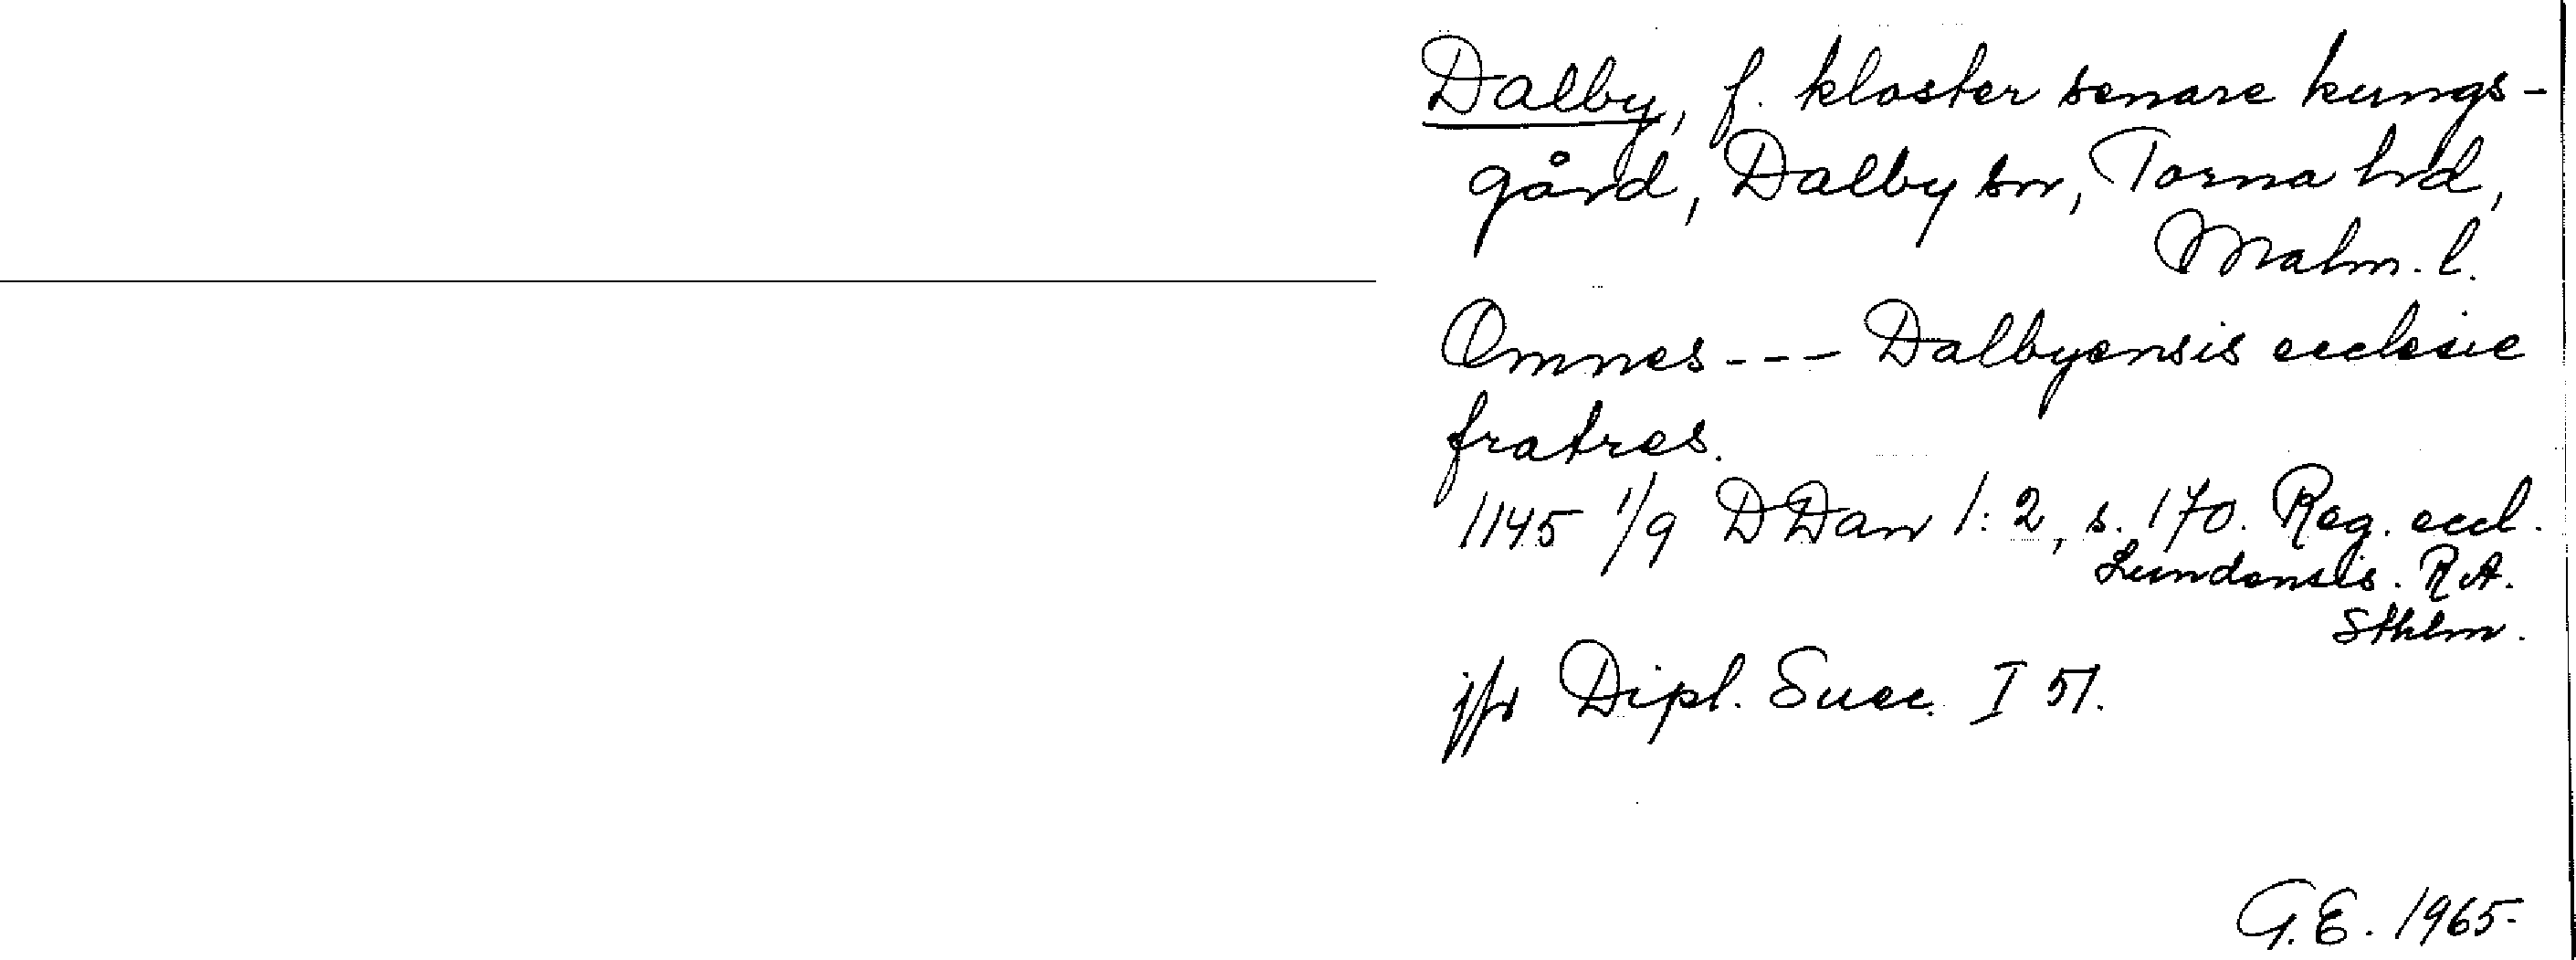 Dalby, f. kloster senare kungs-
gård, Dalby sn, Torna hd,
Malm. l.
Omnes --- Dalbyensis ecclesie
fratres.
1145 1/9 DDan 1:2, s. 170. Reg. eccl.
Lundensis. RA.
Sthlm.
jfr Dipl. Suec. I 51.
G.E. 1965